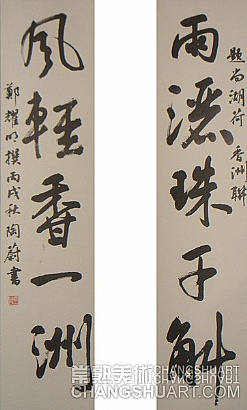 題尚湖荷香洲聯
雨濕珠千斛
風輕香一洲
鄭耀明撰丙戌秋陶蔚書
常熟美術
CHANGSHUART.COM